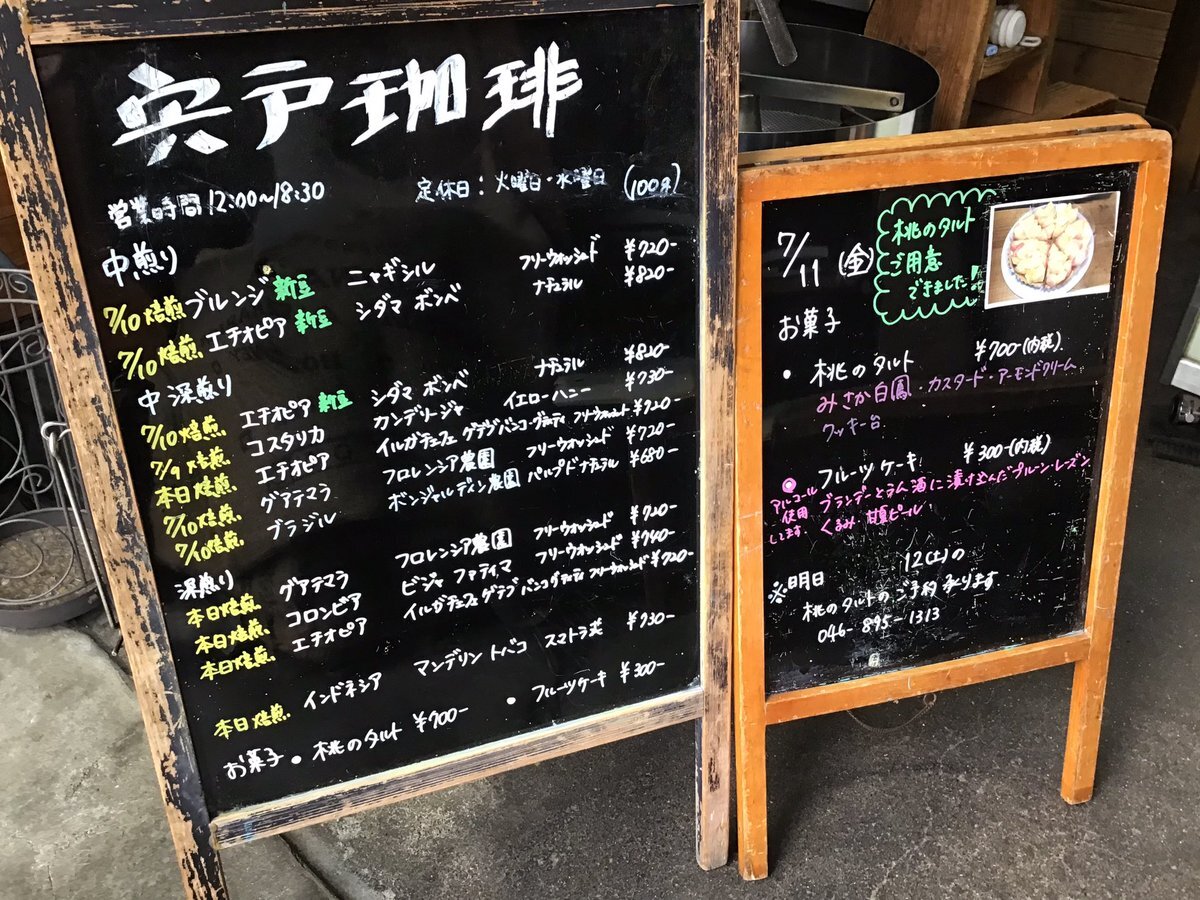 宍戸珈琲
営業時間 12:00〜18:30
定休日：火曜日・水曜日 (100g)
中煎り
7/10焙煎 ブルンジ 新豆 ニャギシル フリーウォッシュド ¥720-
7/10焙煎 エチオピア 新豆 シダマ ボンベ ナチュラル ¥820-
中深煎り
7/10焙煎 エチオピア 新豆 シダマ ボンベ ナチュラル ¥820-
7/9焙煎 コスタリカ カンデリージャ イエローハニー ¥730-
本日焙煎 エチオピア イルガチェフェ ゲデブ バンコ・ゴティティ フリーウォッシュド ¥720-
7/10焙煎 グアテマラ フロレンシア農園 フリーウォッシュド ¥720-
7/10焙煎 ブラジル ボンジャルディン農園 パルプドナチュラル ¥680-
深煎り
本日焙煎 グアテマラ フロレンシア農園 フリーウォッシュド ¥720-
本日焙煎 コロンビア ビジャ ファティマ フリーウォッシュド ¥740-
本日焙煎 エチオピア イルガチェフェ ゲデブ バンコ ゴティティ フリーウォッシュド ¥720-
本日焙煎 インドネシア マンデリン トバコ スマトラ式 ¥730-
お菓子 • 桃のタルト ¥700- • フルーツケーキ ¥300-
7/11 (金)
桃のタルト
ご用意
できました！
お菓子
• 桃のタルト ¥700-(内税)
みさか白鳳・カスタード・アーモンドクリーム
クッキー台
◉ フルーツケーキ ¥300-(内税)
アルコール
使用
してます
ブランデーとラム酒に漬け込んだプルーン・レーズン
くるみ 甘夏ピール
※明日 12(土)の
桃のタルトのご予約承ります
046-895-1313